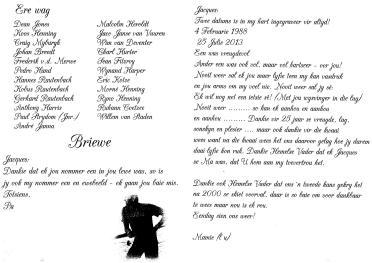 Ere wag
Dean Jones
Koos Henning
Craig Myburgh
Johan Breedt
Frederik v.d. Merwe
Pedro Hand
Hannes Rautenbach
Kobus Rautenbach
Gerhard Rautenbach
Anthony Harris
Paul Strydom (Jnr.)
André Janna
Malcolm Heroldt
Jaco Janse van Vuuren
Wim van Deventer
Charl Harter
Stan Fitzroy
Wynand Harper
Eric Kotze
Morné Henning
Ryno Henning
Riekann Coetzee
Willem van Staden
Briewe
Jacques:
Dankie dat ek jou nommer een in jou lewe was, so is
jy ook my nommer een en voorbeeld - ek gaan jou baie mis.
Totsiens,
Pa
Jacques:
Twee datums is in my hart ingegraveer vir altyd!
4 Februarie 1988
25 Julie 2013
Een was vreugdevol
Ander een was ook vol, maar vol hartseer - oor jou!
Nooit weer sal ek jou maer lyfie teen my kan vasdruk
en jou arms om my voel nie. Nooit weer sal jy sê:
Ek wil nog net een ietsie eet! (Met jou wegwinger in die lug)
Nooit weer ........... so kan ek aanhou en aanhou
en aanhou .......... Dankie vir 25 jaar se vreugde, lag,
sonskyn en plesier .... maar ook dankie vir die kwaai
wees want na die kwaai wees het ons daarvan gelag hoe jy daarem
daai lyfie kon ruk. Dankie ons Hemelse Vader dat ek Jacques
se Ma was, dat U hom aan my toevertrou het.
Dankie ook Hemelse Vader dat ons 'n tweede kans gekry het
na 2000 se skiet voorval, daar is so baie om voor dankbaar
te wees maar nou is ek rou.
Eendag sien ons weer!
Mamie (t v)